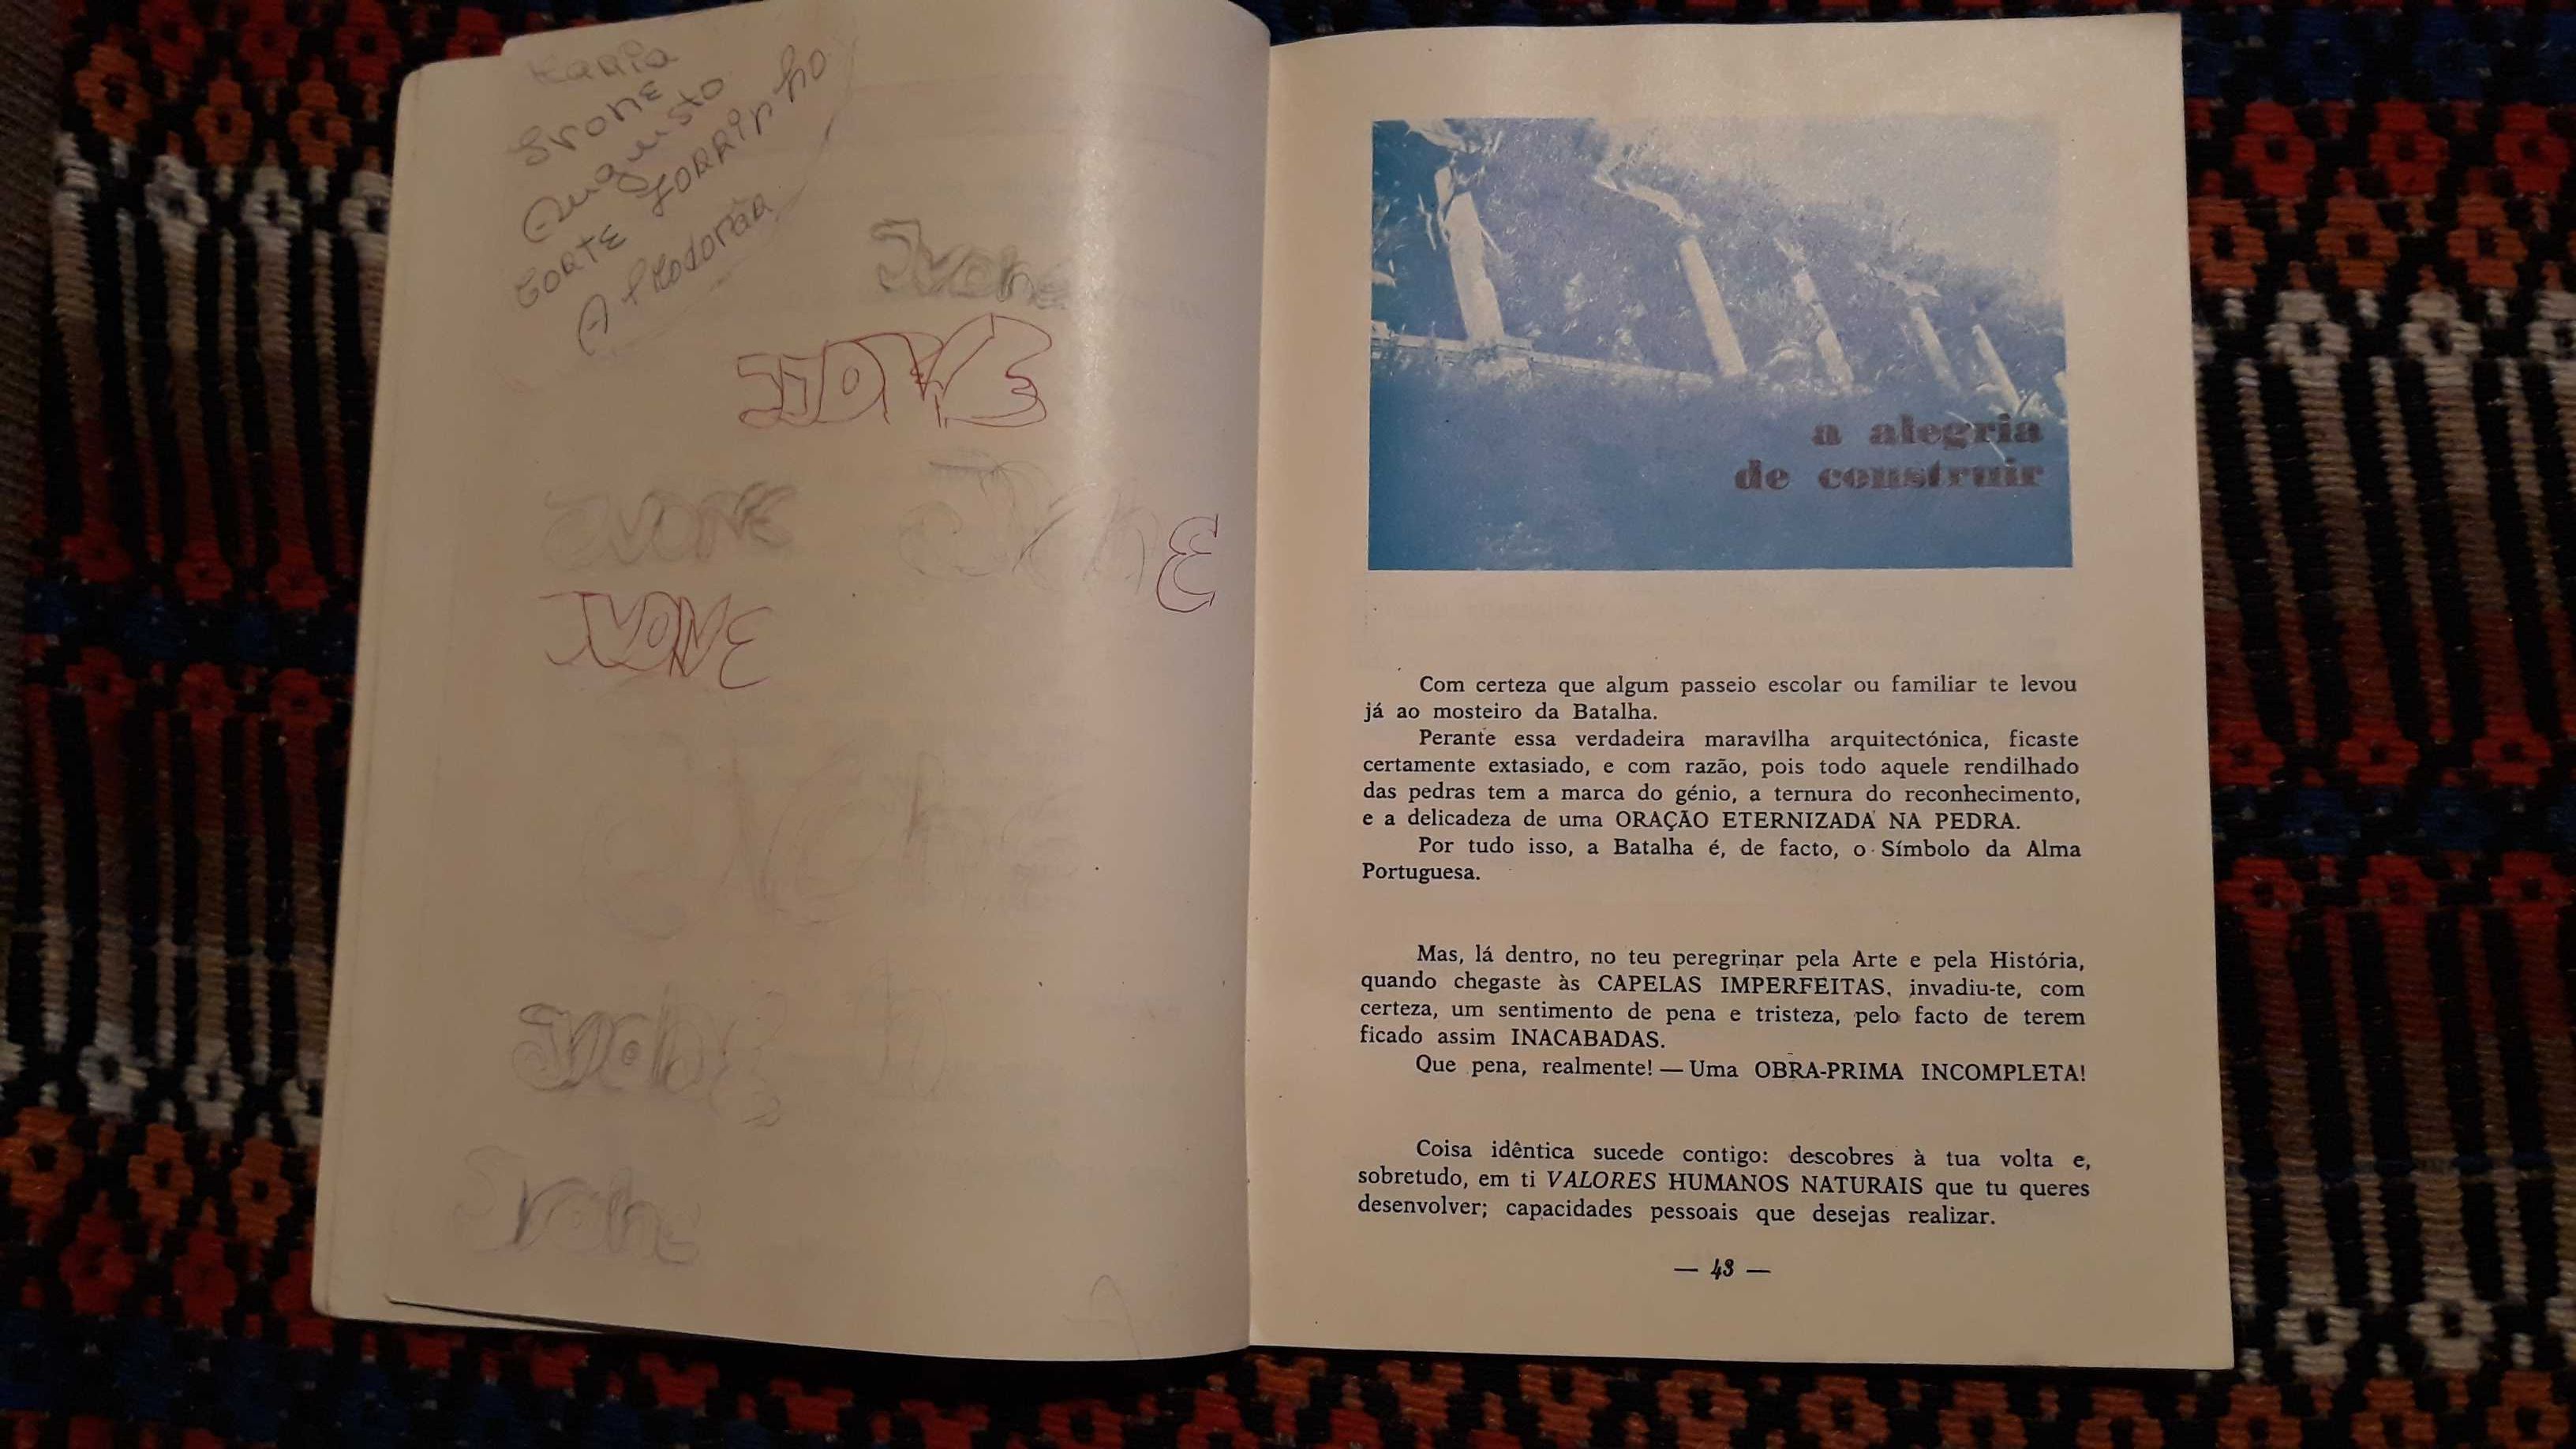 Maria
Ivone
Augusto
CORTE ZORRINHO
Ivone
IVONE
IVONE
IVONE
Ivone
Ivone
a alegria
de construir
Com certeza que algum passeio escolar ou familiar te levou
já ao mosteiro da Batalha.
Perante essa verdadeira maravilha arquitectónica, ficaste
certamente extasiado, e com razão, pois todo aquele rendilhado
das pedras tem a marca do génio, a ternura do reconhecimento,
e a delicadeza de uma ORAÇÃO ETERNIZADA NA PEDRA.
Por tudo isso, a Batalha é, de facto, o Símbolo da Alma
Portuguesa.
Mas, lá dentro, no teu peregrinar pela Arte e pela História,
quando chegaste às CAPELAS IMPERFEITAS, invadiu-te, com
certeza, um sentimento de pena e tristeza, pelo facto de terem
ficado assim INACABADAS.
Que pena, realmente! — Uma OBRA-PRIMA INCOMPLETA!
Coisa idêntica sucede contigo: descobres à tua volta e,
sobretudo, em ti VALORES HUMANOS NATURAIS que tu queres
desenvolver; capacidades pessoais que desejas realizar.
— 43 —